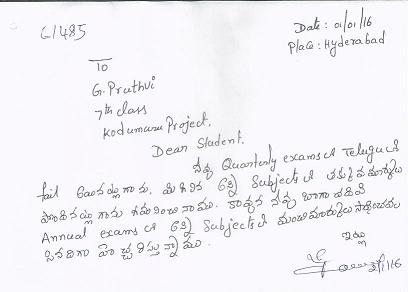 61485
Date: 01/01/16
Place: Hyderabad
To
G. Pruthvi
7th class
Kodumuru Project.
Dear Student.
నీవు Quarterly exams లో Telugu లో
fail అయినట్లుగాను, మిగిలిన అన్ని Subjects లో తక్కువ మార్కులు
పొందినట్లు గాను గమనించినాము. కావున నీవు బాగా చదివి
Annual exams లో అన్ని Subjects లో మంచి మార్కులు సాధించవలసినదిగా
హెచ్చరిస్తున్నాము.
ఇట్లు